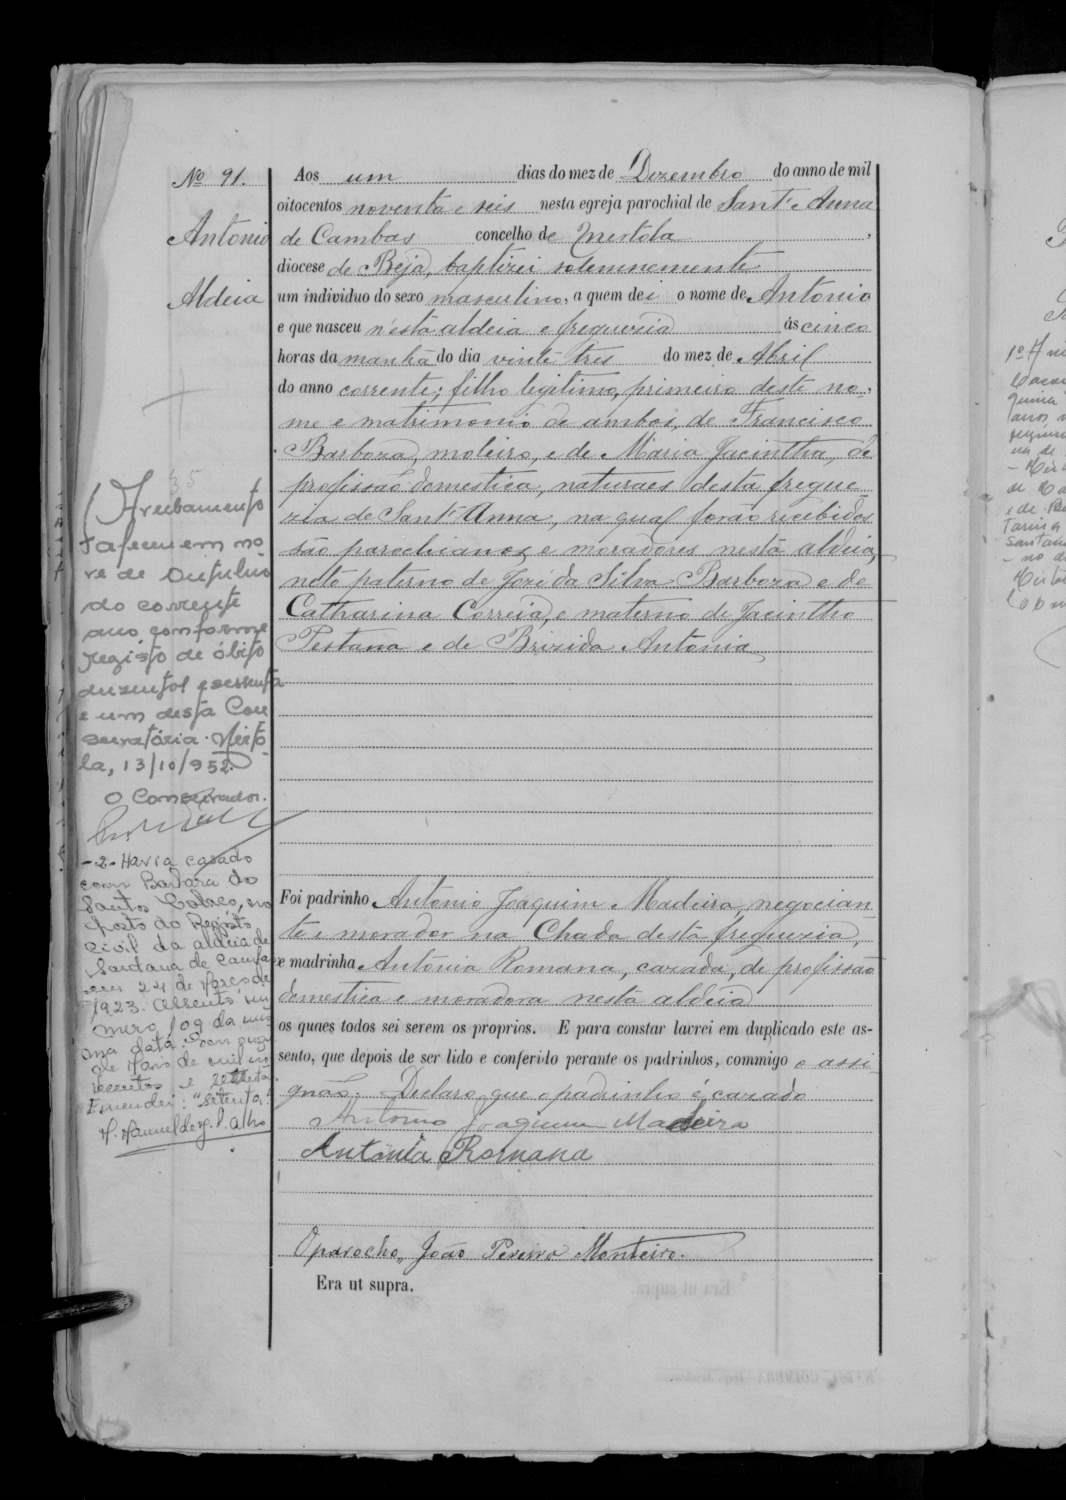 Nº 91.
Antonio
Aldeia
Aos um dias do mez de Dezembro do anno de mil
oitocentos noventa e seis nesta egreja parochial de Sant'Anna
de Cambas concelho de Mertola,
diocese de Beja, baptizei solemnemente
um individuo do sexo masculino, a quem dei o nome de Antonio
e que nasceu n'esta aldeia e freguezia ás cinco
horas da manhã do dia vinte tres do mez de Abril
do anno corrente; filho legitimo, primeiro deste no-
me e matrimonio de ambos, de Francisco
Barboza, moleiro, e de Maria Jacintha, de
profissão domestica, naturaes desta fregue-
zia de Sant'Anna, na qual forão recebidos
são parochianos e moradores nesta aldeia,
neto paterno de José da Silva Barboza e de
Catharina Correia, e materno de Jacintho
Pestana e de Brizida Antonia
Foi padrinho Antonio Joaquim Madeira, negocian-
te e morador na Chada desta freguezia,
e madrinha Antónia Romana, cazada, de profissão
domestica e moradora nesta aldeia
os quaes todos sei serem os proprios. E para constar lavrei em duplicado este as-
sento, que depois de ser lido e conferido perante os padrinhos, commigo o assi-
gnão. Declaro que o padrinho é cazado
Antonio Joaquim Madeira
Antónia Romana
O parocho, João Pereira Monteiro.
Era ut supra.
1 Averbamento
Faleceu em no-
ve de Outubro
do corrente
ano, conforme
registo de óbito
duzentos e sessenta
e um desta Con-
servatória. Mérto-
la, 13/10/952.
O Conservador.
-2- Havia casado
com Barbara dos
Santos Colaço, no
posto do Registo
Civil da aldeia de
Santana de Cambas
em 24 de Março de
1923. Assento nu-
mero 109 da mes-
ma data.
de Maio de mil no-
vecentos e setenta
Emendei: "setenta".